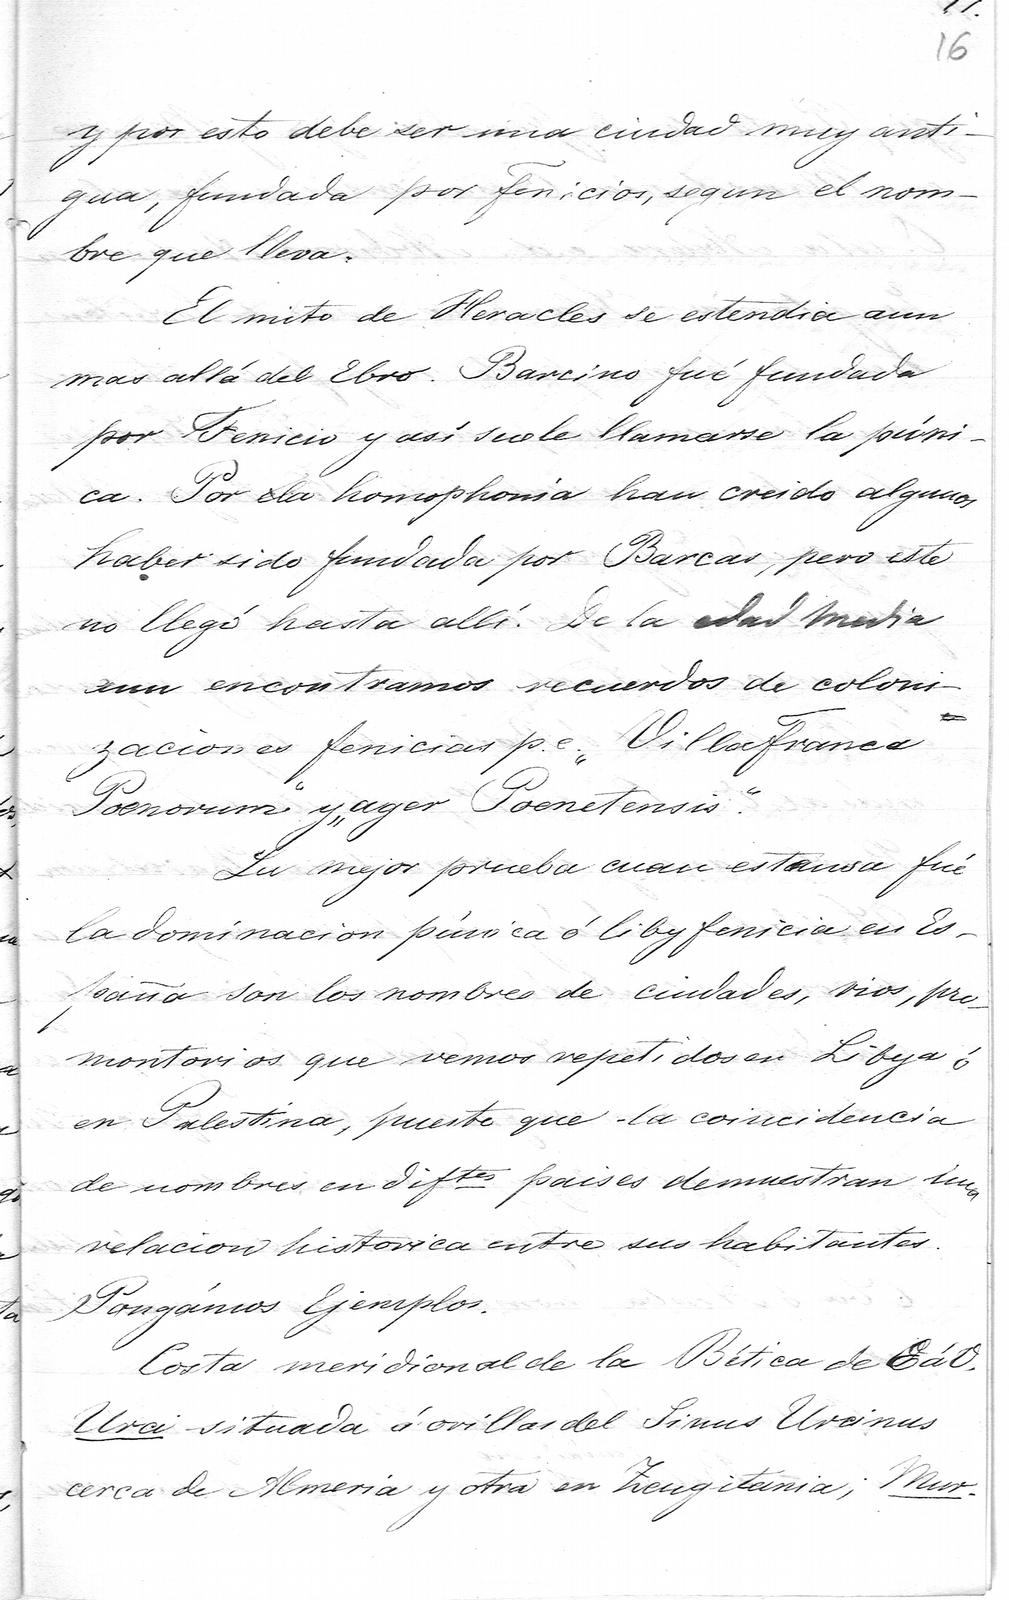 16
y por esto debe ser una ciudad muy anti-
gua, fundada por Fenicios, segun el nom-
bre que lleva.
El mito de Heracles se estendia aun
mas allá del Ebro. Barcino fué fundada
por Fenicio y así suele llamarse la púni-
ca. Por la homophonia han creido algunos
haber sido fundada por Barcas, pero este
no llegó hasta allí. De la edad media
aun encontramos recuerdos de coloni-
zaciones fenicias p.e. „Villa Franca
Poenorum“ y „ager Poenetensis“.
La mejor prueba cuan estensa fué
la dominacion púnica ó libyfenicia en Es-
paña son los nombres de ciudades, rios, pro-
montorios que vemos repetidos en Libya ó
en Palestina, puesto que la coincidencia
de nombres en diftes paises demuestran una
relacion historica entre sus habitantes.
Pongámos Ejemplos.
Costa meridional de la Bética de E á O.
Urci situada á orillas del Sinus Urcinus
cerca de Almeria y otra en Zeugitania; Mur-